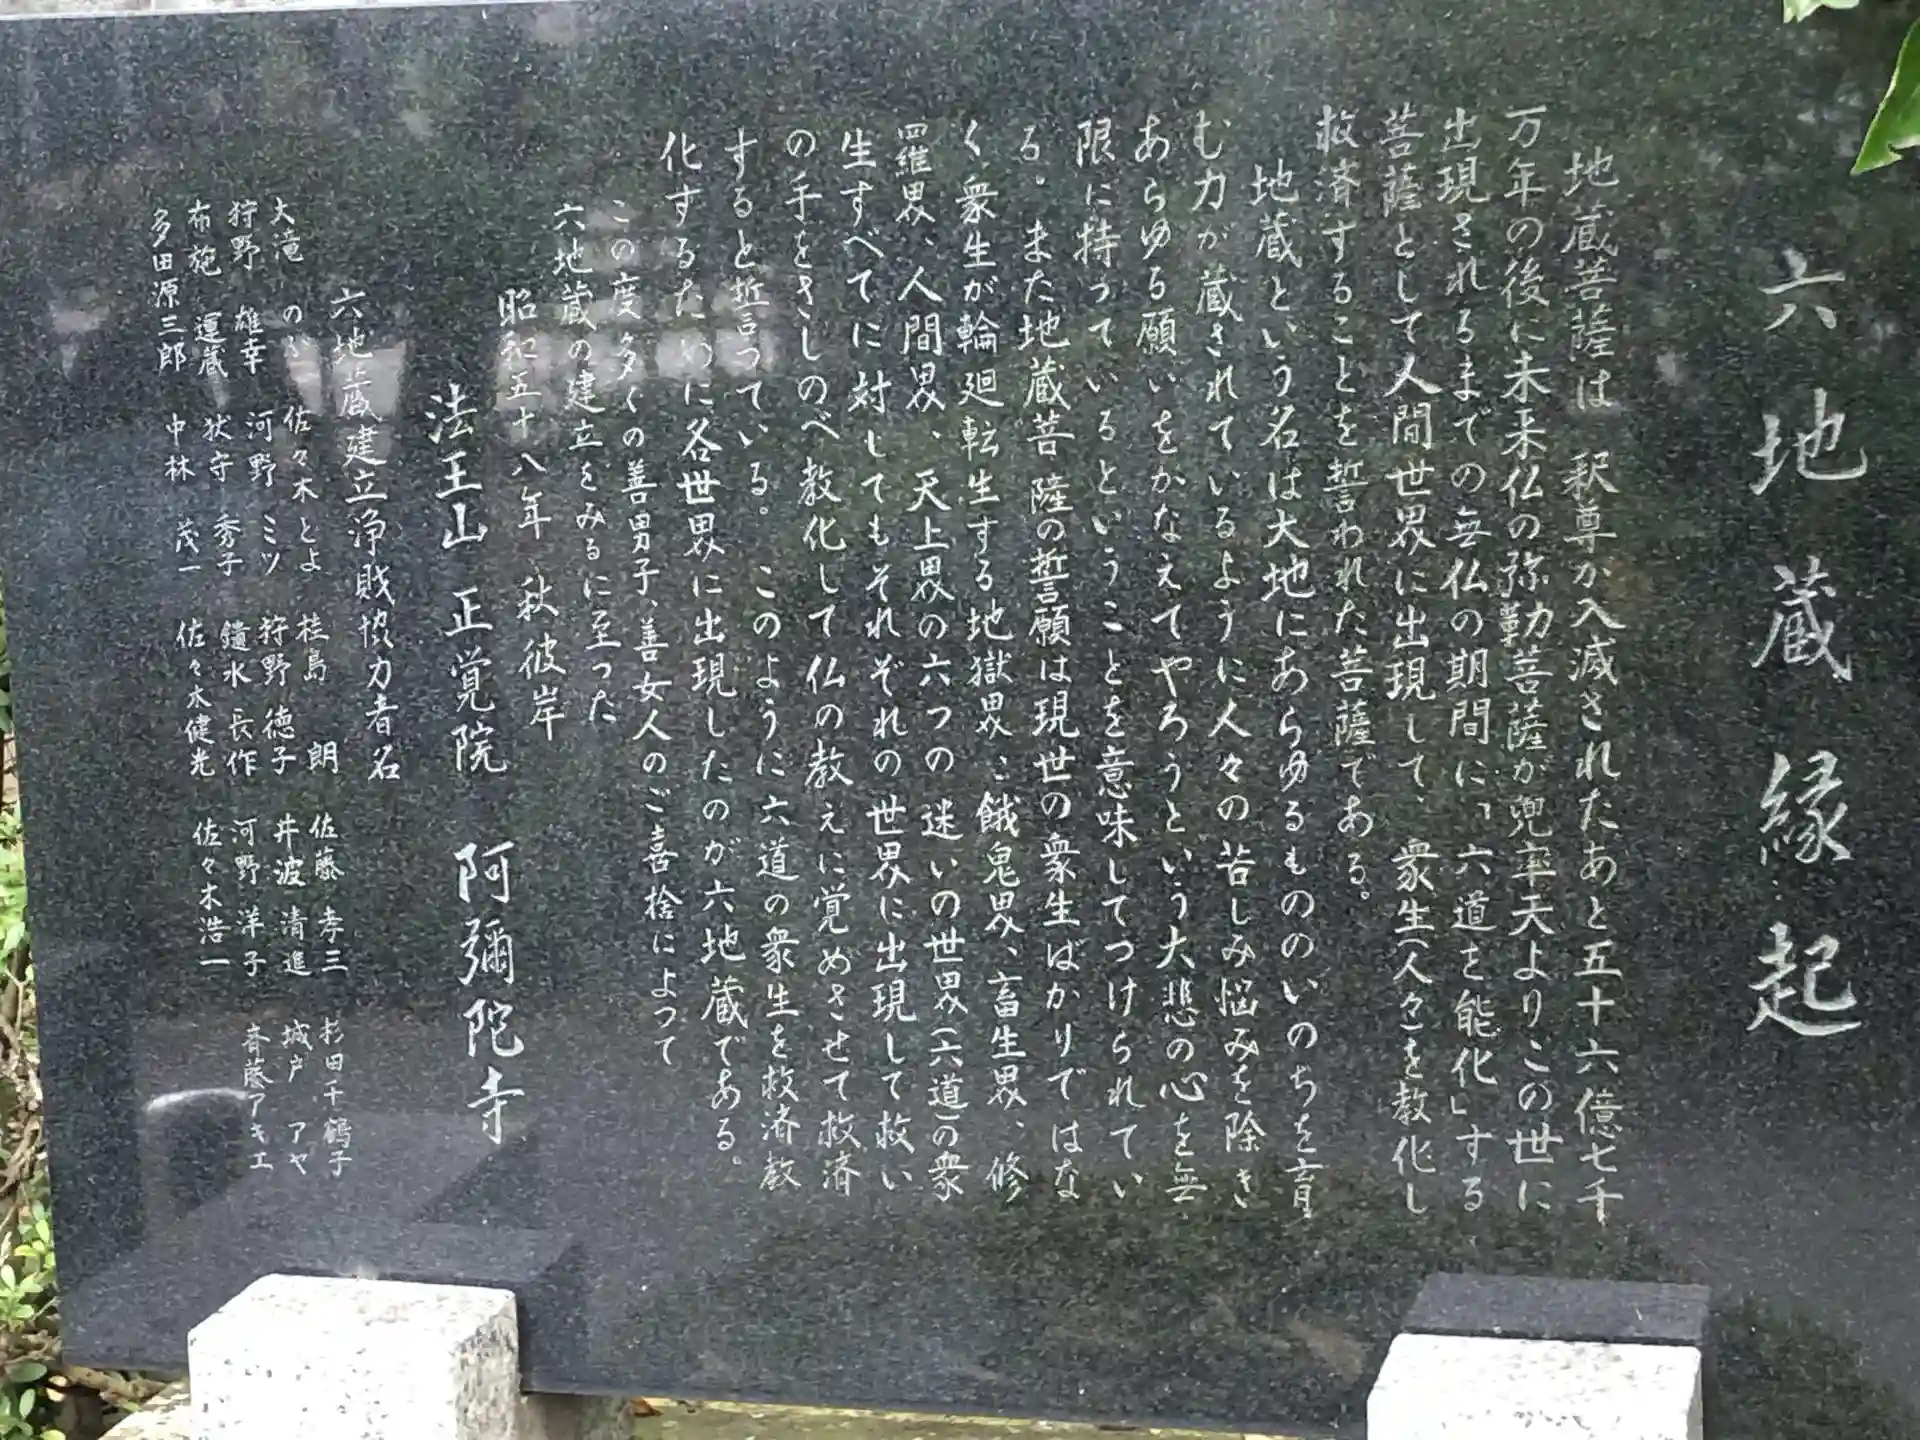 六地蔵縁起
地蔵菩薩は 釈尊が入滅されたあと五十六億七千
万年の後に未来仏の弥勒菩薩が兜率天よりこの世に
出現されるまでの無仏の期間に、六道を能化」する
菩薩として人間世界に出現して、衆生(人々)を教化し
救済することを誓われた菩薩である。
地蔵という名は大地にあらゆるもののいのちを育
む力が蔵されているように人々の苦しみ悩みを除き
あらゆる願いをかなえてやろうという大悲の心を無
限に持っているということを意味してつけられてい
る。また地蔵菩薩の誓願は現世の衆生ばかりではな
く衆生が輪廻転生する地獄界、餓鬼界、畜生界、修
羅界、人間界、天上界の六つの迷いの世界(六道)の衆
生すべてに対してもそれぞれの世界に出現して救い
の手をさしのべ教化して仏の教えに覚めさせて救済
すると誓っている。このように六道の衆生を救済教
化するために各世界に出現したのが六地蔵である。
この度多くの善男子、善女人のご喜捨によって
六地蔵の建立をみるに至った
昭和五十八年 秋彼岸
法王山 正覚院 阿彌陀寺
六地蔵建立浄財協力者名
大滝 のぶ 佐々木とよ 桂島 朗 佐藤孝三 杉田千鶴子
狩野 雄幸 河野ミツ 狩野徳子 井波清進 城戸アヤ
布施運蔵 狄守秀子 鑓水長作 河野洋子 斉藤アキエ
多田源三郎 中林茂一 佐々木健光 佐々木浩一